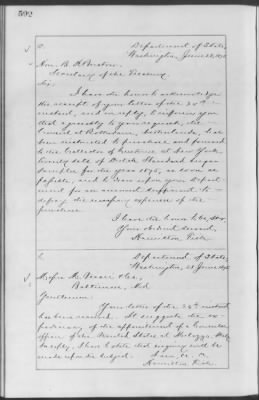 592
Department of State,
Washington, June 28, 1875
Hon. B. H. Bristow,
Secretary of the Treasury.
Sir,
I have the honor to acknowledge
the receipt of your letter of the 24th
instant, and in reply, to inform you
that agreeably to your request, the
Consul at Rotterdam, Netherlands, has
been instructed to purchase and forward
to the Collector of Customs at New York
twenty sets of Dutch Standard Sugar
Samples for the year 1875, as soon as
possible, and to draw upon your Depart-
ment for an amount sufficient to
defray the necessary expense of the
purchase.
I have the honor to be, Sir,
Your obedient servant,
Hamilton Fish.
Department of State,
Washington, 28 June
Messrs
Baltimore, Md
Gentlemen
Your letter of the 26th instant
has been received. It suggests the ex-
pediency of the appointment of a Consular
officer of the United States at
In reply, I have to state that inquiry will be
made upon the subject. I am, &c.
Hamilton Fish.